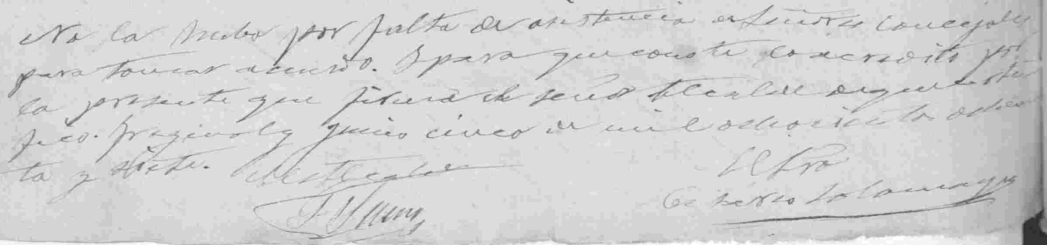 No la hubo por falta de asistencia de Señores Concejales
para tomar acuerdo. Y para que conste lo acredito por
la presente que firma el Señor Alcalde de que certi
fico. y Junio cinco de mil ochocientos ochen
ta y siete.
El Alcalde
El Srio